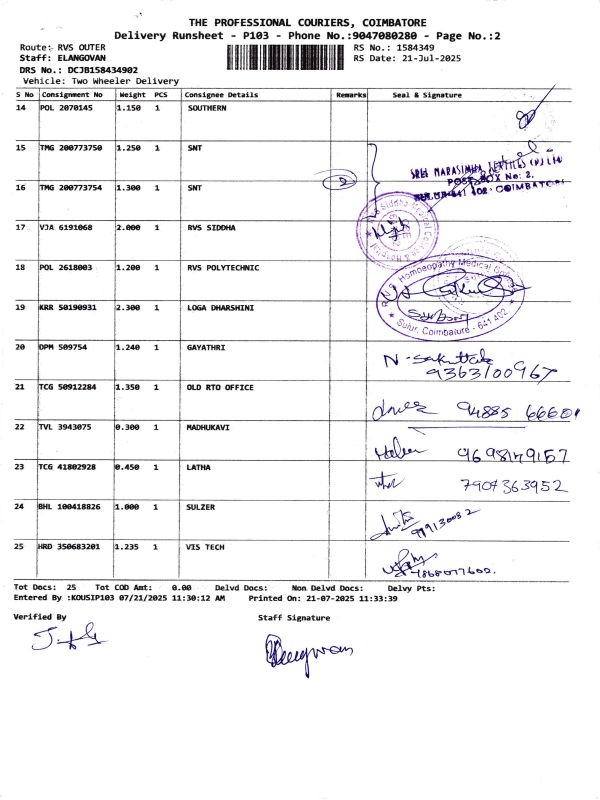 THE PROFESSIONAL COURIERS, COIMBATORE
Delivery Runsheet - P103 - Phone No.:9047080280 - Page No.:2
Route: RVS OUTER
RS No.: 1584349
Staff: ELANGOVAN
RS Date: 21-Jul-2025
DRS No.: DCJB158434902
Vehicle: Two Wheeler Delivery
S No Consignment No Weight PCS Consignee Details Remarks Seal & Signature
14 POL 2070145 1.150 1 SOUTHERN
15 TMG 200773750 1.250 1 SNT
SREE NARASIMHA TEXTILES (P) LTD
POST BOX No: 2,
16 TMG 200773754 1.300 1 SNT 2
SULUR-641 402. COIMBATORE
17 VJA 6191068 2.000 1 RVS SIDDHA
18 POL 2618003 1.200 1 RVS POLYTECHNIC
19 KRR 50190931 2.300 1 LOGA DHARSHINI
Sulur, Coimbature - 641 402
20 DPM 509754 1.240 1 GAYATHRI
9363100967
21 TCG 50912284 1.350 1 OLD RTO OFFICE
94885 66601
22 TVL 3943075 0.300 1 MADHUKAVI
9698149157
23 TCG 41802928 0.450 1 LATHA
7907363952
24 BHL 100418826 1.000 1 SULZER
25 HRD 350683201 1.235 1 VIS TECH
Tot Docs: 25 Tot COD Amt: 0.00 Delvd Docs: Non Delvd Docs: Delvy Pts:
Entered By :KOUSIP103 07/21/2025 11:30:12 AM Printed On: 21-07-2025 11:33:39
Verified By
Staff Signature